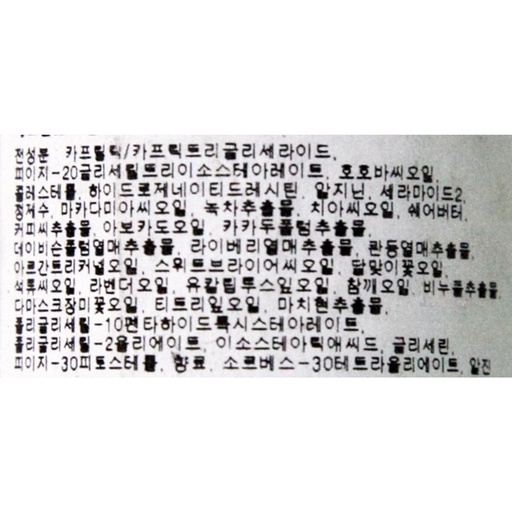 전성분 카프릴릭/카프릭트리글리세라이드,
피이지-20글리세릴트리이소스테아레이트, 호호바씨오일,
콜러스테롤, 하이드로제네이티드레시틴, 알지닌, 세라마이드2,
정제수, 마카다미아씨오일, 녹차추출물, 치아씨오일, 쉐어버터,
커피씨추출물, 아보카도오일, 카카두플럼추출물,
데이비슨플럼열매추출물, 라이베리열매추출물, 콴동열매추출물,
아르간트리커널오일, 스위트브라이어씨오일, 달맞이꽃오일,
석류씨오일, 라벤더오일, 유칼립투스잎오일, 참깨오일, 비누풀추출물,
다마스크장미꽃오일, 티트리잎오일, 마치현추출물,
폴리글리세릴-10펜타하이드록시스테아레이트,
폴리글리세릴-2올리에이트, 이소스테아릭애씨드, 글리세린,
피이지-30피토스테롤, 향료, 소르베스-30테트라올리에이트, 알진